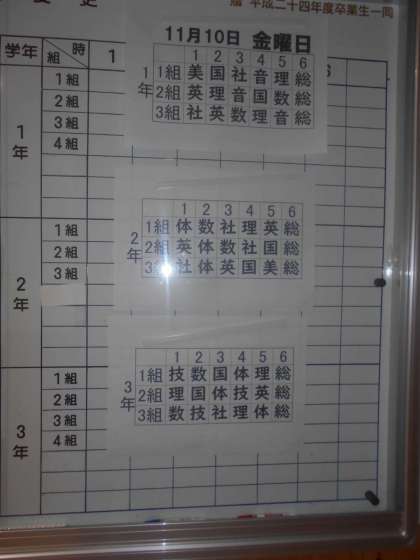 変更
贈 平成二十四年度卒業生一同
学年 組 時 1 6
1年 1組
2組
3組
4組
2年 1組
2組
3組
3年 1組
2組
3組
4組
11月10日 金曜日
1年
1 2 3 4 5 6
1組 美 国 社 音 理 総
2組 英 理 音 国 数 総
3組 社 英 数 理 音 総
2年
1 2 3 4 5 6
1組 体 数 社 理 英 総
2組 英 体 数 社 国 総
3組 社 体 英 国 美 総
3年
1 2 3 4 5 6
1組 技 数 国 体 理 総
2組 理 国 体 技 英 総
3組 数 技 社 理 体 総